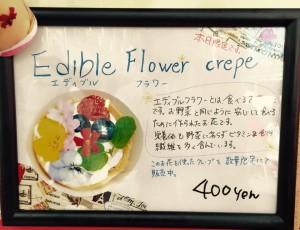 本日限定です。
Edible Flower crepe
エディブル フラワー
エディブルフラワーとは食べるお花
です。お野菜と同じように安心して食べる
ために作られたお花です。
栄養価も野菜に劣らずビタミンや食物
繊維を多く含んでいます。
このお花を使ったクレープを数量限定にて
販売中。
400yen